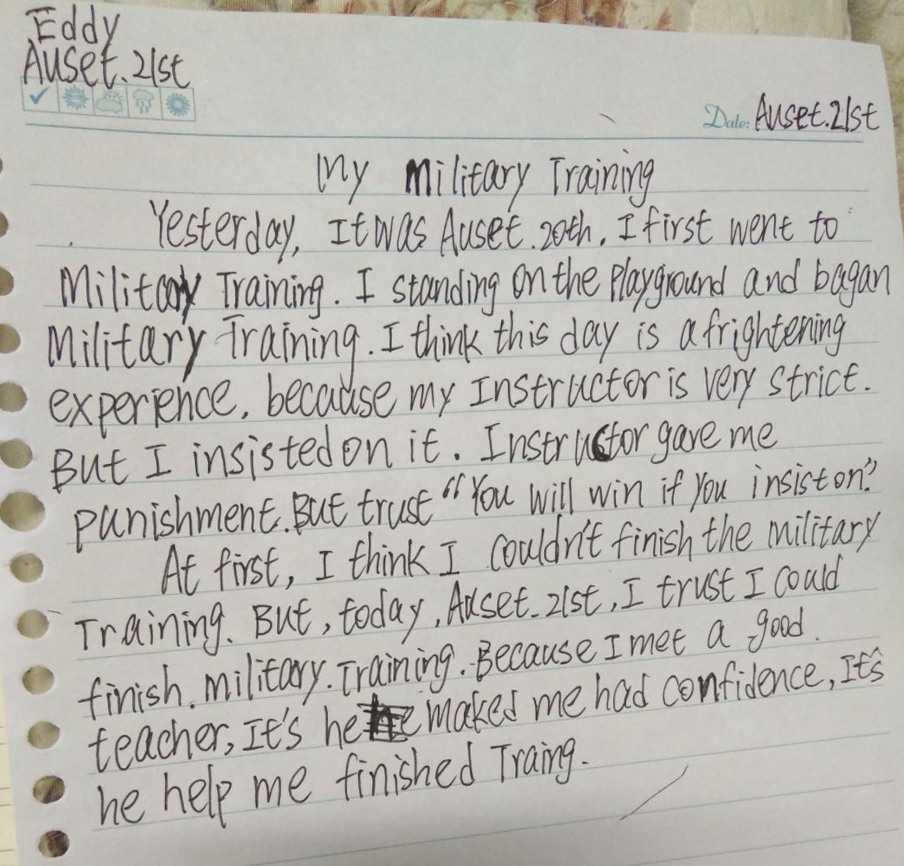 Eddy
Auset.21st
Date: Auset.21st
My Military Training
Yesterday, It was Auset.20th. I first went to
Military Training. I standing on the playground and bagan
Military Training. I think this day is a frightening
experience, because my Instructor is very strict.
But I insisted on it. Instructor gave me
punishment. But trust “You will win if you insist on”?
At first, I think I couldn't finish the military
Training. But, today, Auset.21st, I trust I could
finish.military.Training. Because I met a good.
teacher, It's he maked me had confidence, It's
he help me finished Traing.